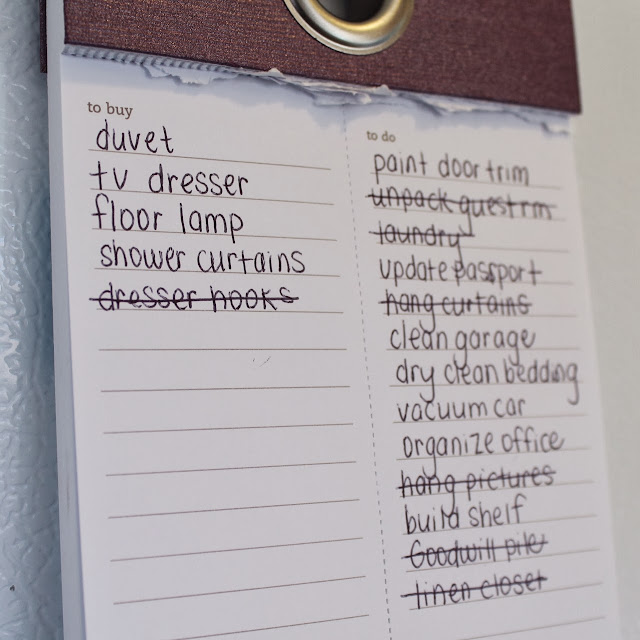 to buy
duvet
tv dresser
floor lamp
shower curtains
dresser hooks
to do
paint door trim
unpack guest rm
laundry
update passport
hang curtains
clean garage
dry clean bedding
vacuum car
organize office
hang pictures
build shelf
Goodwill pile
linen closet